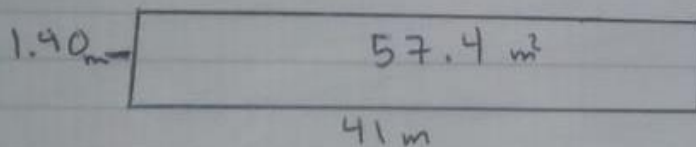 1.40 m
57.4 m²
41 m